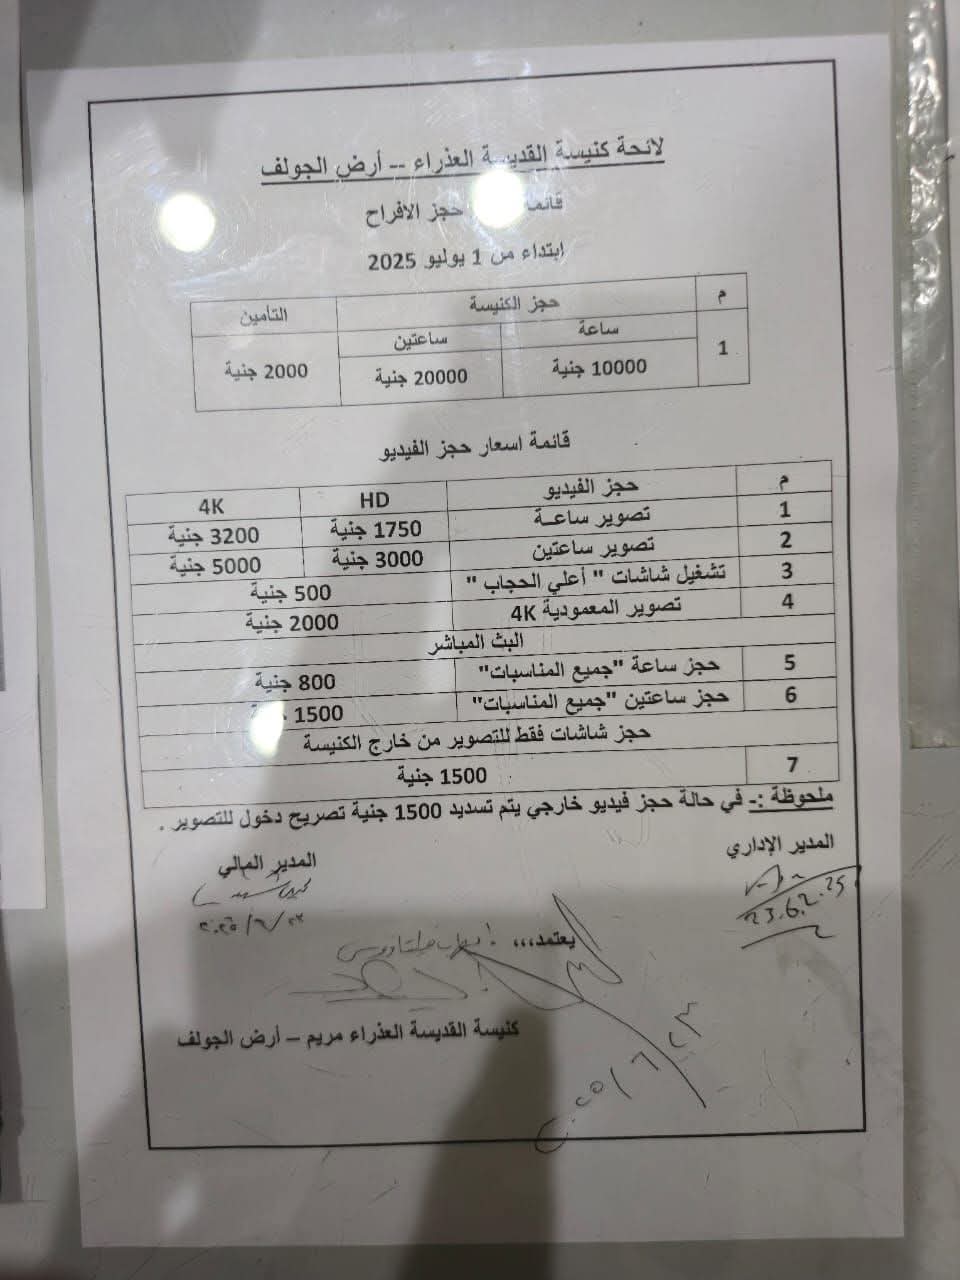 لائحة كنيسة القديسة العذراء -- أرض الجولف
حجز الافراح
ابتداء من 1 يوليو 2025
م حجز الكنيسة التأمين
ساعة ساعتين
1 10000 جنية 20000 جنية 2000 جنية
قائمة اسعار حجز الفيديو
م حجز الفيديو HD 4K
1 تصوير ساعــة 1750 جنية 3200 جنية
2 تصوير ساعتين 3000 جنية 5000 جنية
3 تشغيل شاشات " أعلي الحجاب " 500 جنية
4 تصوير المعمودية 4K 2000 جنية
البث المباشر
5 حجز ساعة "جميع المناسبات" 800 جنية
6 حجز ساعتين "جميع المناسبات" 1500
حجز شاشات فقط للتصوير من خارج الكنيسة
7 1500 جنية
ملحوظة :- في حالة حجز فيديو خارجي يتم تسديد 1500 جنية تصريح دخول للتصوير .
المدير الإداري المدير المالي
٢٠٢٥/٦/٢٣
يعتمد،،،
كنيسة القديسة العذراء مريم – أرض الجولف
٢٠٢٥/٦/٢٣